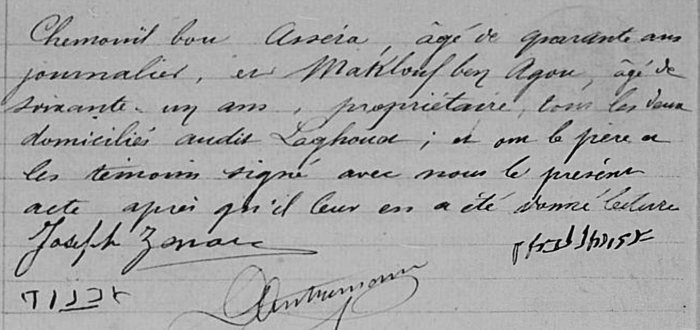 Chemouil bou Asséra, âgé de quarante ans
journalier, et Maklouf ben Agou, âgé de
soixante-un ans, propriétaire, tous les deux
domiciliés audit Laghouat ; et ont le père et
les témoins signé avec nous le présent
acte après qu'il leur en a été donné lecture
Joseph